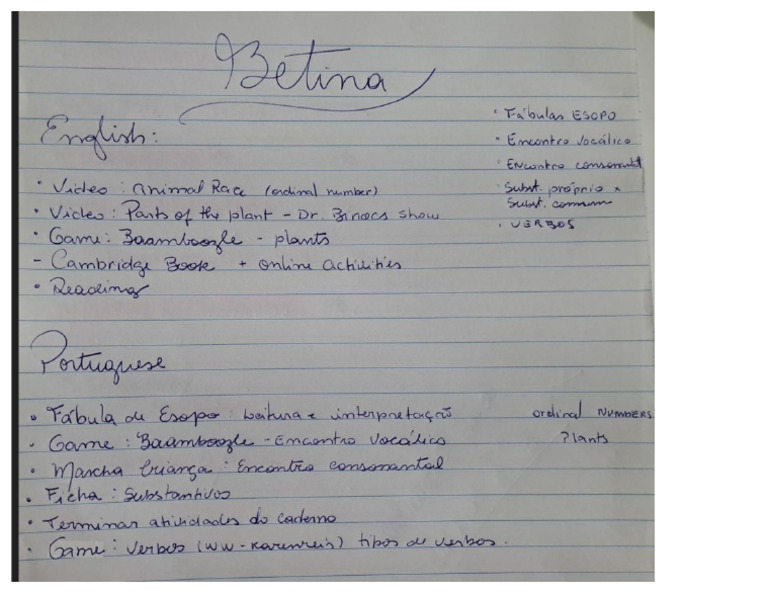 Betina
English:
• Video: Animal Race (ordinal number)
• Video: Parts of the plant - Dr. Binocs show
• Game: Baamboozle - plants
- Cambridge Book + online activities
• Reading
• Fábulas ESOPO
• Encontro vocálico
• Encontro consonantal
• Subst. próprio x
Subst. comum
• VERBOS
Portuguese
• Fábula de Esopo: leitura e interpretação
• Game: Baamboozle - Encontro vocálico
• Marcha Criança: Encontro consonantal
• Ficha: Substantivos
• Terminar atividades do caderno
• Game: verbos (ww-karenreis) tipos de verbos.
ordinal NUMBERS
Plants